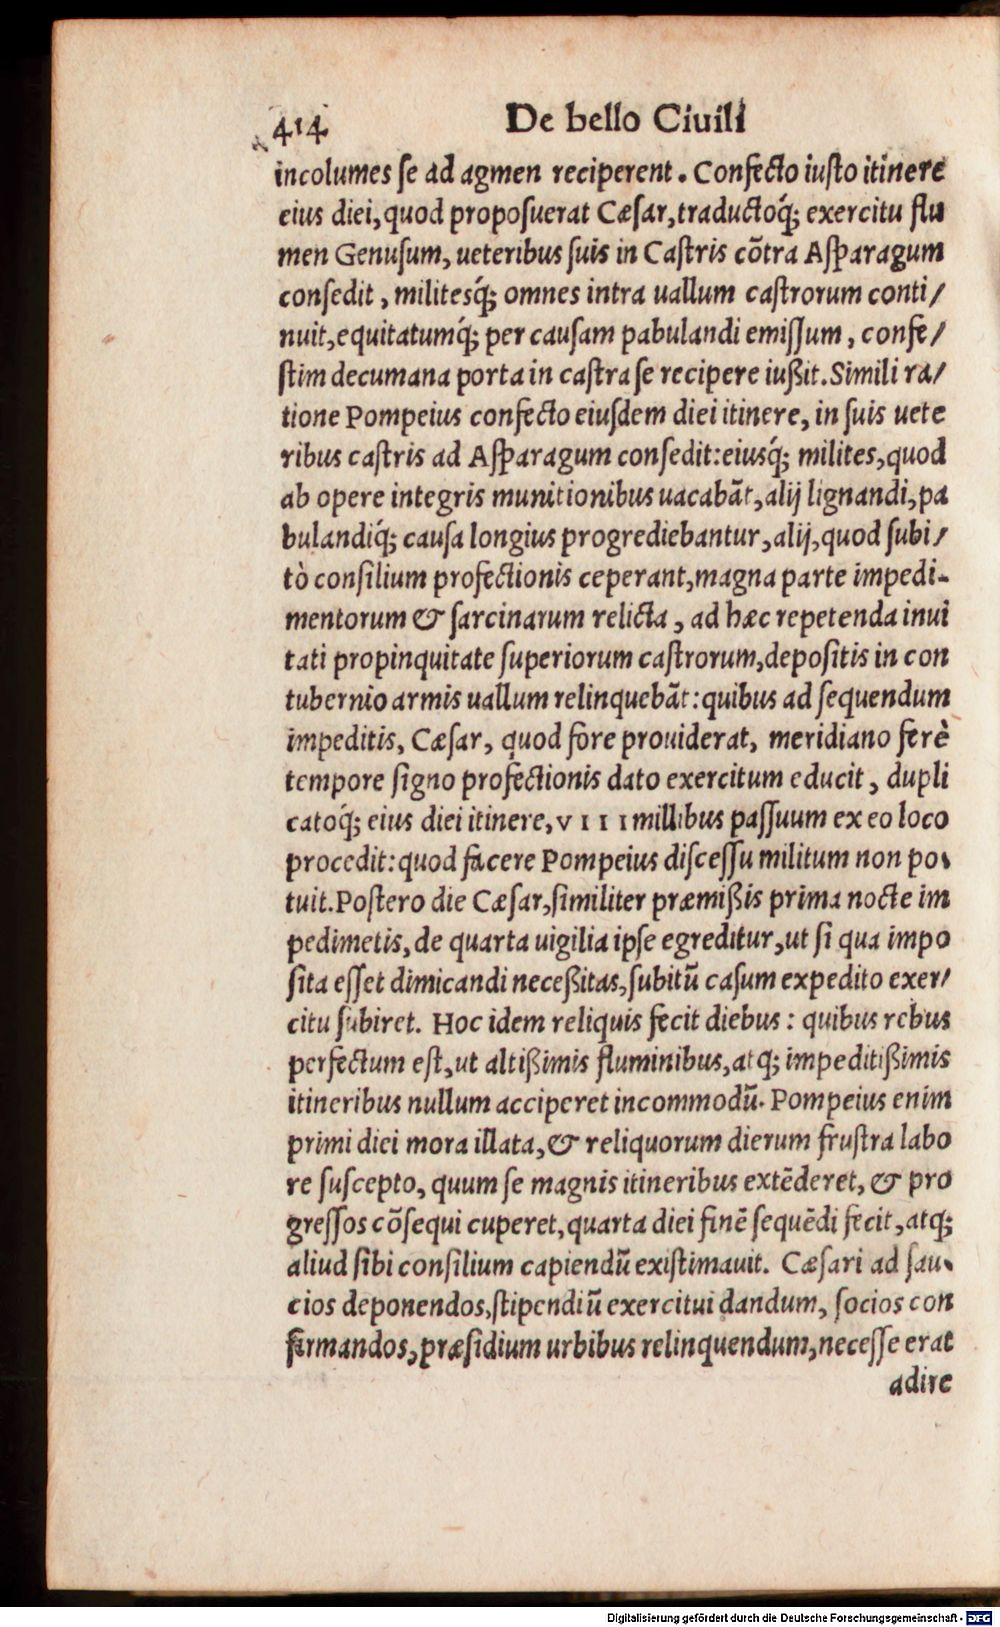 414 De bello Ciuili
incolumes ſe ad agmen reciperent. Confecto iuſto itinere
eius diei, quod propoſuerat Cæſar, traductoq́; exercitu flu
men Genuſum, ueteribus ſuis in Caſtris cõtra Aſparagum
conſedit, militesq́; omnes intra uallum caſtrorum conti/
nuit, equitatumq́; per cauſam pabulandi emiſſum, confe/
ſtim decumana porta in caſtra ſe recipere iußit. Simili ra/
tione Pompeius confecto eiuſdem diei itinere, in ſuis uete
ribus caſtris ad Aſparagum conſedit: eiusq́; milites, quod
ab opere integris munitionibus uacabãt, alij lignandi, pa
bulandiq́; cauſa longius progrediebantur, alij, quod ſubi/
tò conſilium profectionis ceperant, magna parte impedi-
mentorum & ſarcinarum relicta, ad hæc repetenda inui
tati propinquitate ſuperiorum caſtrorum, depoſitis in con
tubernio armis uallum relinquebãt: quibus ad ſequendum
impeditis, Cæſar, quod fore prouiderat, meridiano ferè
tempore ſigno profectionis dato exercitum educit, dupli
catoq́; eius diei itinere, VIII millibus paſſuum ex eo loco
procedit: quod facere Pompeius diſceſſu militum non po-
tuit. Poſtero die Cæſar, ſimiliter præmißis prima nocte im
pedimetis, de quarta uigilia ipſe egreditur, ut ſi qua impo
ſita eſſet dimicandi neceßitas, ſubitũ caſum expedito exer/
citu ſubiret. Hoc idem reliquis fecit diebus: quibus rebus
perfectum eſt, ut altißimis fluminibus, atq; impeditißimis
itineribus nullum acciperet incommodũ. Pompeius enim
primi diei mora illata, & reliquorum dierum fruſtra labo
re ſuſcepto, quum ſe magnis itineribus extẽderet, & pro
greſſos cõſequi cuperet, quarta diei finẽ ſequẽdi fecit, atq;
aliud ſibi conſilium capiendũ exiſtimauit. Cæſari ad ſau-
cios deponendos, ſtipendiũ exercitui dandum, ſocios con
firmandos, præſidium urbibus relinquendum, neceſſe erat
adire
Digitalisierung gefördert durch die Deutsche Forschungsgemeinschaft - DFG